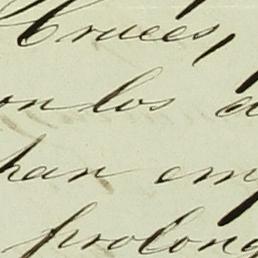 Cruces,
on los d
han em
prolong